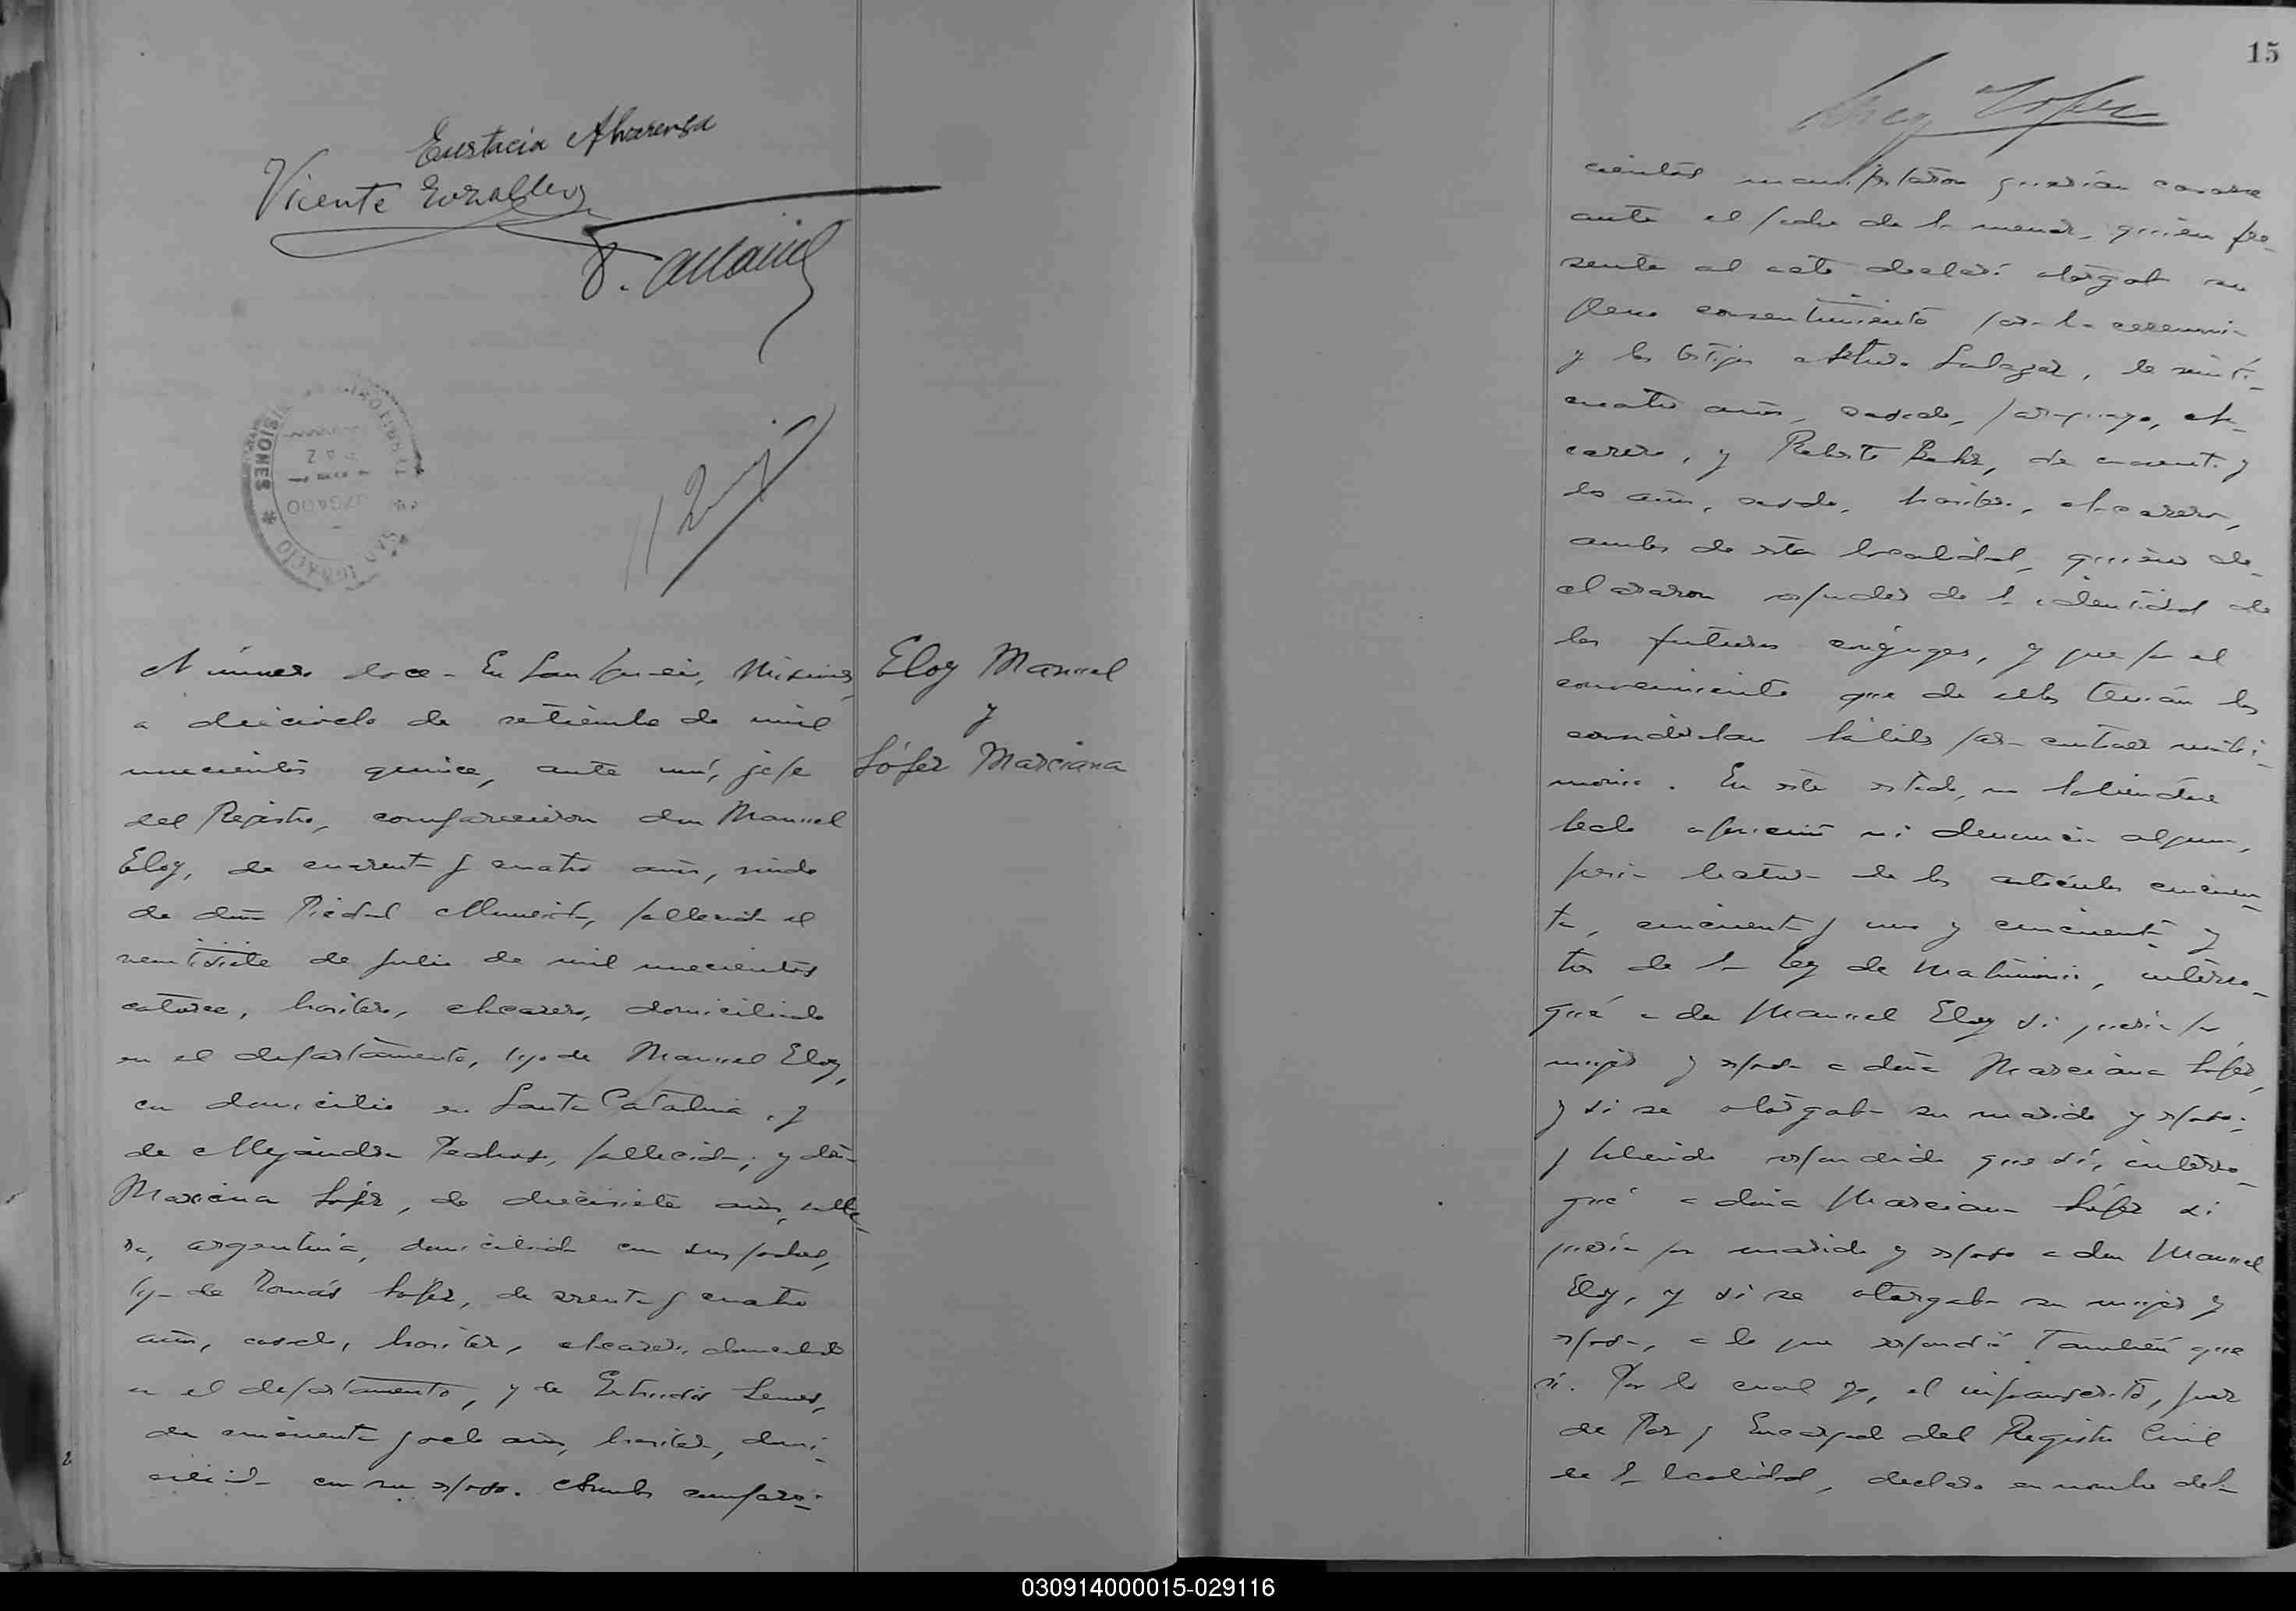 Eustacia Alvarenga
Vicente
SIONES
SAN IGNACIO
Número doce - En San Ignacio, Misiones,
a dieciocho de setiembre de mil
novecientos quince, ante mí, jefe
del Registro, comparecieron don Manuel
Eloy, de cuarenta y cuatro años, viudo
de doña Piedad Almeida, fallecida el
veintisiete de julio de mil novecientos
catorce, brasilero, chacarero, domiciliado
en el departamento, hijo de Manuel Eloy,
con domicilio en Santa Catalina, y
de Alejandra Pedroso, fallecida; y doña
Marciana López, de diecisiete años, solte-
ra, argentina, domiciliada con sus padres,
hija de Tomás López, de y cuatro
años, casado, brasilero, chacarero, domiciliado
en el departamento, y de Lemos,
de cincuenta y ocho años, brasilera, domi-
ciliada con su esposo. Ambos compare-
Eloy Manuel
y
López Marciana
15
cientes manifestaron querían casarse
ante el padre de la menor, quien pre-
sente al acto declaró otorgaba su
pleno consentimiento para la ceremonia
y los testigos Arturo Salazar, de veinti-
cuatro años, casado, paraguayo, cha-
carero, y Roberto de cuarenta y
dos años, casado, brasilero, chacarero,
ambos de esta localidad, quienes de-
clararon responder de la identidad de
los futuros cónyuges, y que por el
conocimiento que de ellos tenían los
consideraban hábiles para contraer matri-
monio. En este estado, no habiéndose
hecho oposición ni denuncia alguna,
previa lectura de los artículos cincuen-
ta, cincuenta y uno y cincuenta y
tres de la Ley de Matrimonio, interro-
gué a don Manuel Eloy si quería por
mujer y esposa a doña Marciana López,
y si se otorgaba su marido y esposo;
y habiendo respondido que sí, interro-
gué a doña Marciana López si
quería por marido y esposo a don Manuel
Eloy, y si se otorgaba su mujer y
esposa, a lo que respondió también que
sí. Por lo cual yo, el infrascrito, Juez
de Paz y Encargado del Registro Civil
de la localidad, declaro en nombre de la
030914000015-029116